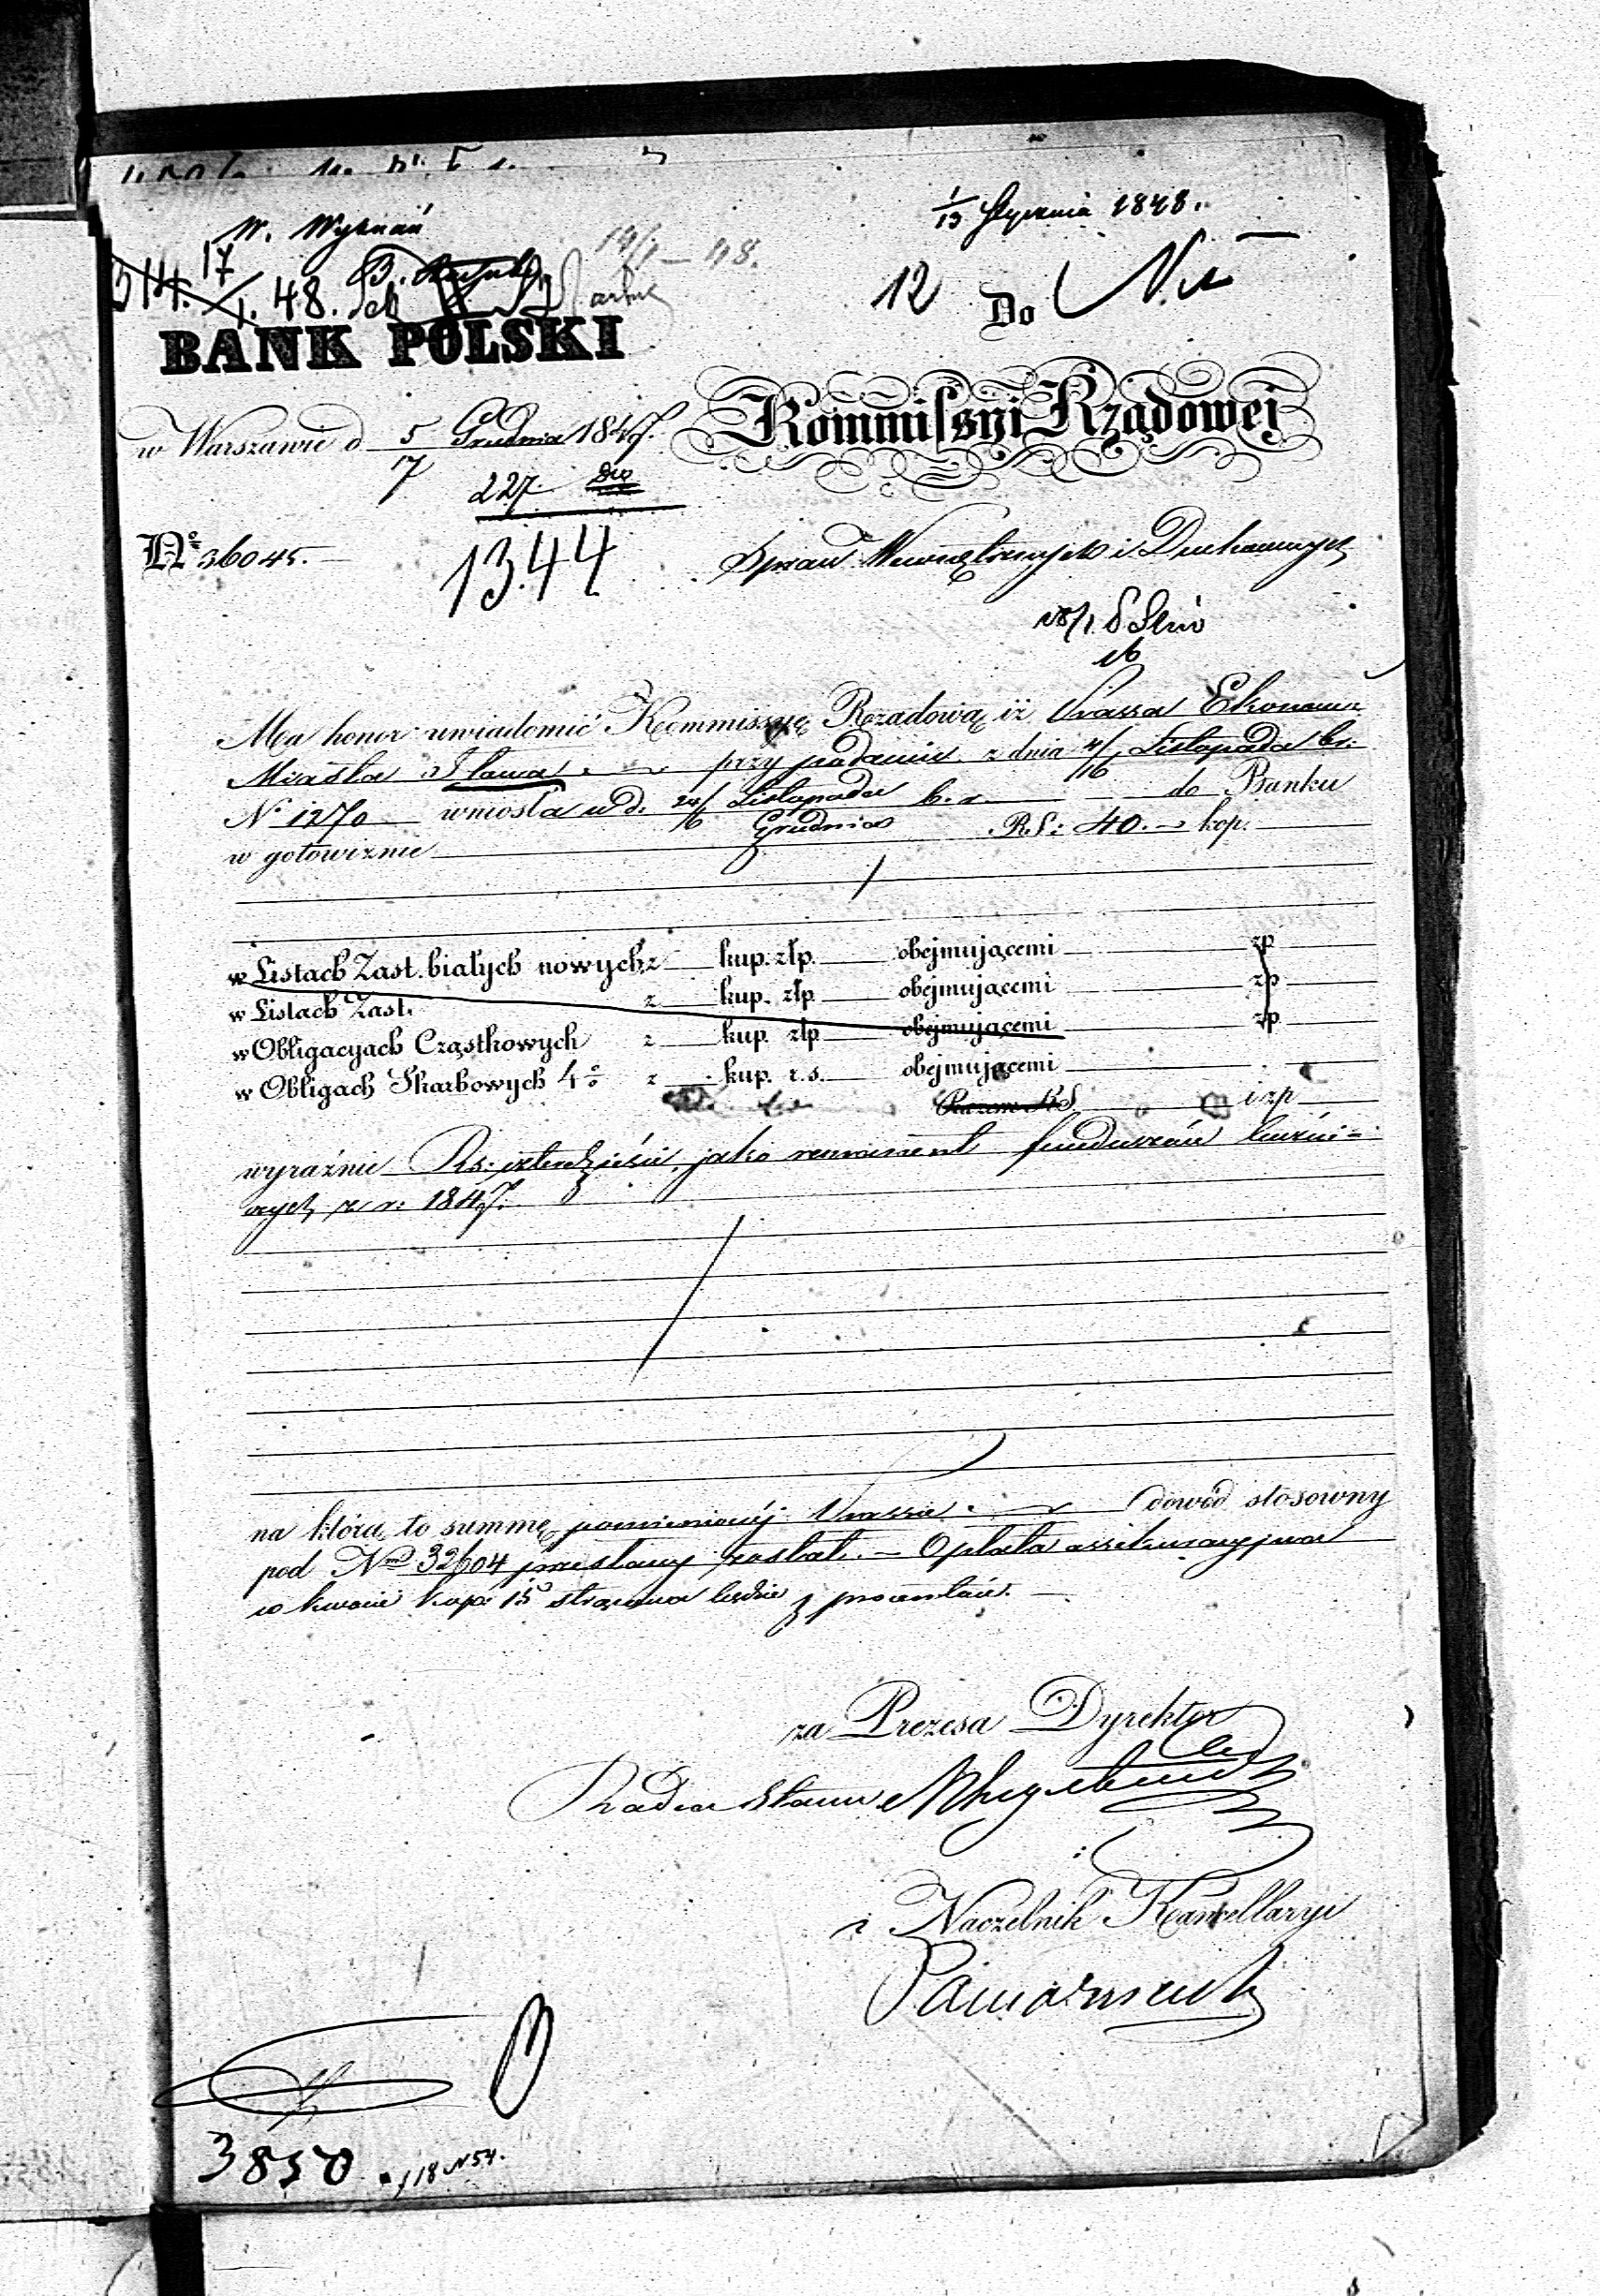 W. Wyznań
1/13 Stycznia 1848.
17/1. 48.
14/1 – 48.
12
Do
BANK POLSKI
Kommissyi Rządowej
w Warszawie d. 5/17 Grudnia 1847.
227
No 36045.
1344
Spraw Wewnętrznych i Duchownych
18/1
16
Ma honor uwiadomić Kommissyę Rządową iż Kassa Ekonom:
Miasta przy podaniu z dnia 4/16 Listopada br.
No 1270 wniosła w d. 24/6 Listopada/Grudnia b. r. do Banku
w gotowiznie R.S: 40. – kop.
w Listach Zast. białych nowych z kup. złp. obejmującemi zp
w Listach Zast. z kup. złp obejmującemi zp
w Obligacyach Cząstkowych z kup. złp obejmującemi zp
w Obligach Skarbowych 4% z kup. r. s. obejmującemi
Razem R.S. i zp
wyraźnie Rs: czterdzieści, jako remanent funduszów
z r: 1847.
na którą to summę pomienionéj Kassie dowód stosowny
pod Nrem 32604 przesłany został. – Opłata assekuracyjna
w kwocie kop: 15 strąconą będzie z procentów. –
za Prezesa Dyrektor
Radca Stanu
i Naczelnik Kancellaryi
3850. 118 N 54.